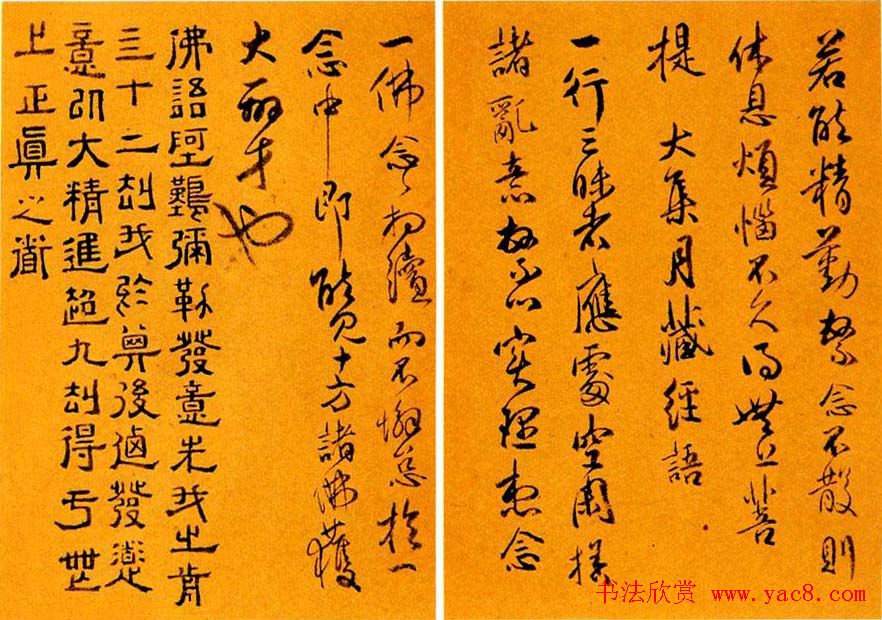 若能精勤繫念不散則
休息煩惱不久得無上菩
提 大集月藏經語
一行三昧者應處空閑捨
諸亂意繫心實理想念
一佛念々相續而不懈怠於一
念中即能見十方諸佛獲
大辯才也
佛語阿難彌勒發意先我之前
三十二劫我於其後迺發道
意以大精進超九劫得于無
上正眞之道
书法欣赏 www.yac8.com